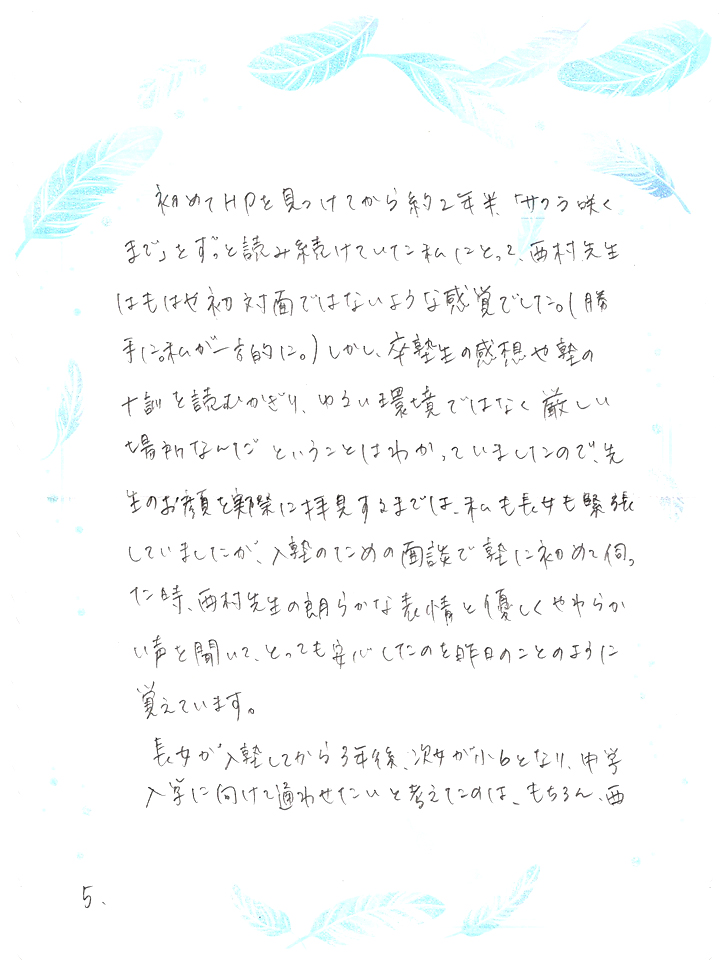 初めてHPを見つけてから約2年半、「サクラ咲く
まで」をずっと読み続けていた私にとって、西村先生
はもはや初対面ではないような感覚でした。(勝
手に。私が一方的に。)しかし、卒塾生の感想や塾の
十訓を読むかぎり、ゆるい環境ではなく厳しい
場所なんだということはわかっていましたので、先
生のお顔を実際に拝見するまでは、私も長女も緊張
していましたが、入塾のための面談で塾に初めて伺っ
た時、西村先生の朗らかな表情と優しくやわらか
い声を聞いて、とっても安心したのを昨日のことのように
覚えています。
長女が入塾してから3年後、次女が小6となり、中学
入学に向けて通わせたいと考えたのは、もちろん、西
5.